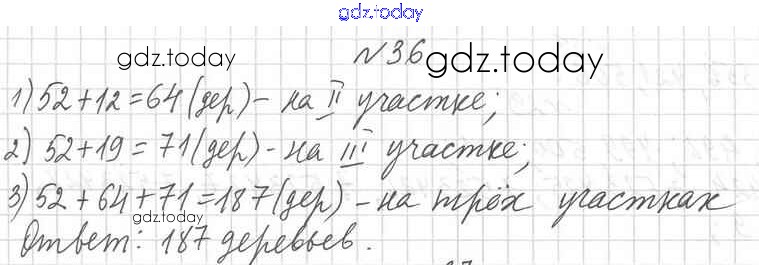 gdz.today
№ 36
gdz.today gdz.today
1) 52+12=64 (дер) - на II участке;
2) 52+19=71 (дер) - на III участке;
3) 52+64+71=187 (дер) - на трёх участках
gdz.today
Ответ: 187 деревьев.